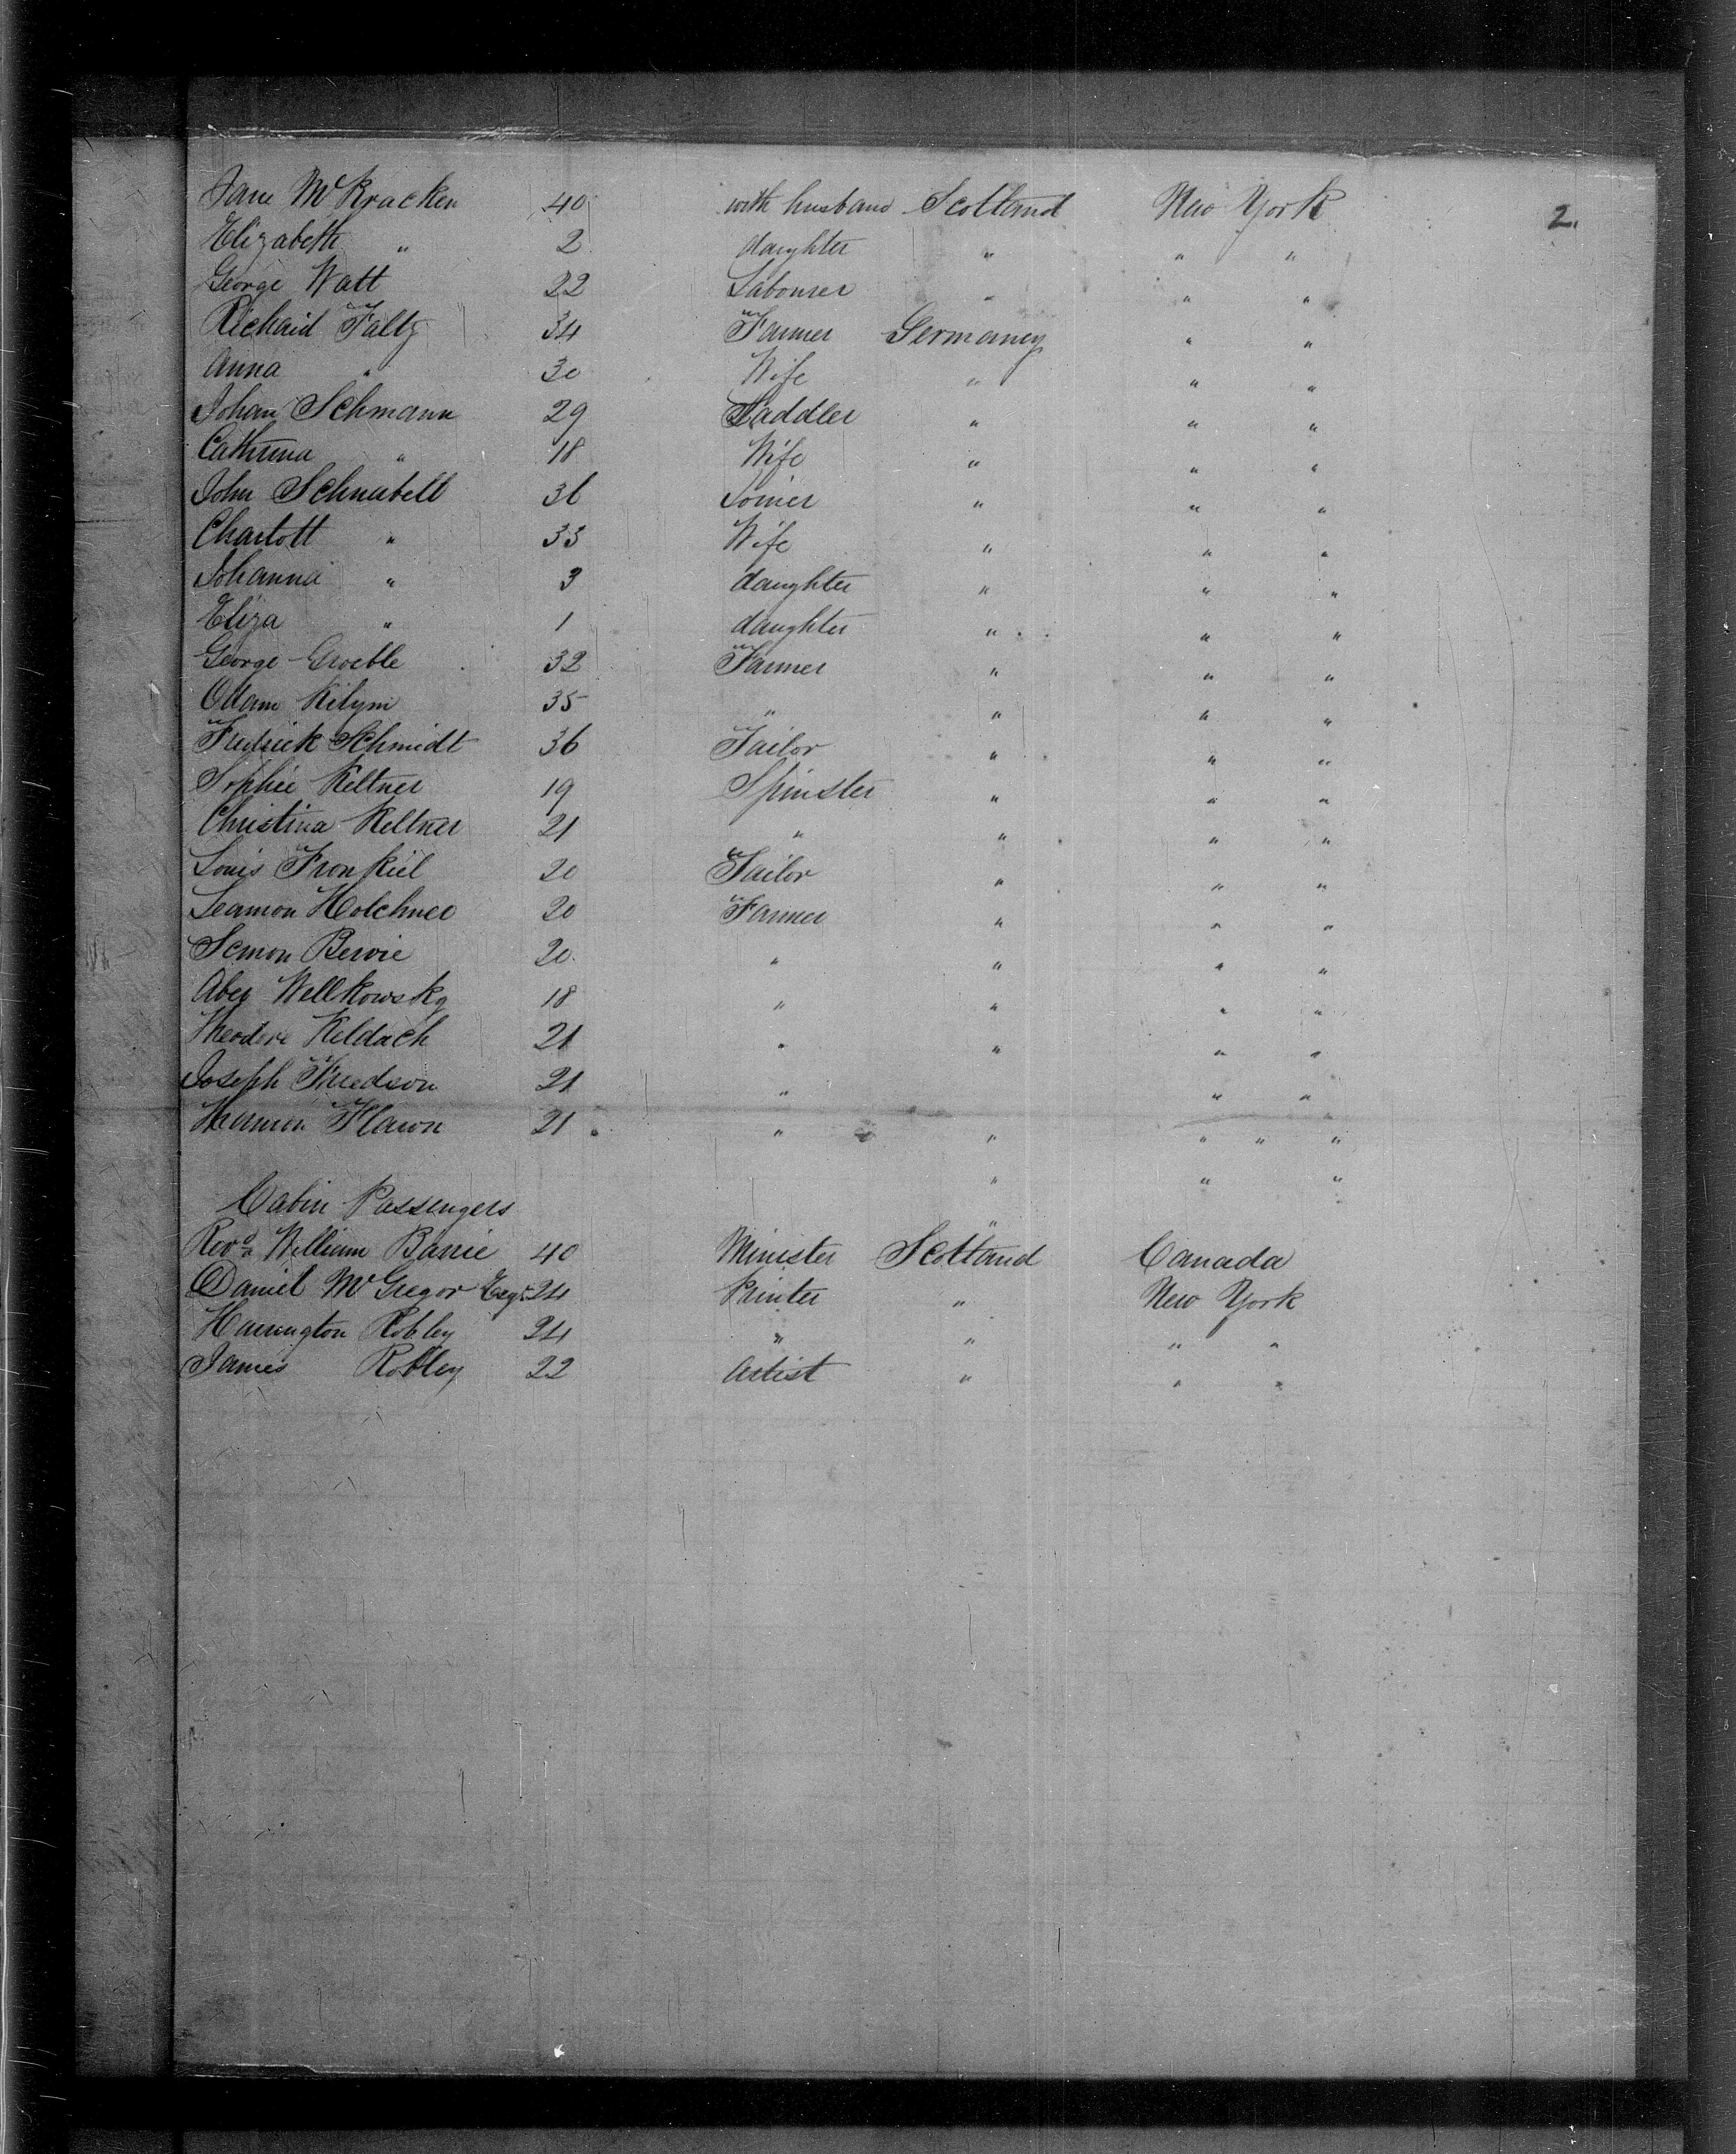 2.
Jane McKracken 40 with husband Scotland New York
Elizabeth " 2 daughter " " "
George Watt 22 Labourer " " "
Richard Faltz 34 Farmer Germaney " "
Anna " 30 Wife " " "
Johan Schmann 29 Saddler " " "
Cathrina " 18 Wife " " "
John Schnabell 36 Joiner " " "
Charlott " 33 Wife " " "
Johanna " 3 daughter " " "
Eliza " 1 daughter " " "
George Groeble 32 Farmer " " "
Adam Kilym 35 " " " "
Fredrick Schmidt 36 Tailor " " "
Sophie Keltner 19 Spinster " " "
Christina Keltner 21 " " " "
Louis Fronkiel 20 Tailor " " "
Seamon Holchner 20 Farmer " " "
Semon Bervie 20 " " " "
Abey Wellkowsky 18 " " " "
Theodore Keldach 21 " " " "
Joseph 21 " " "
Harmon Flawn 21 " " " " "
" " "
Cabin Passengers "
Revd William Barrie 40 Minister Scotland Canada
Daniel McGregor Esqr 24 Printer " New York
Harrington Robley 24 " " " "
James Robley 22 Artist " " "